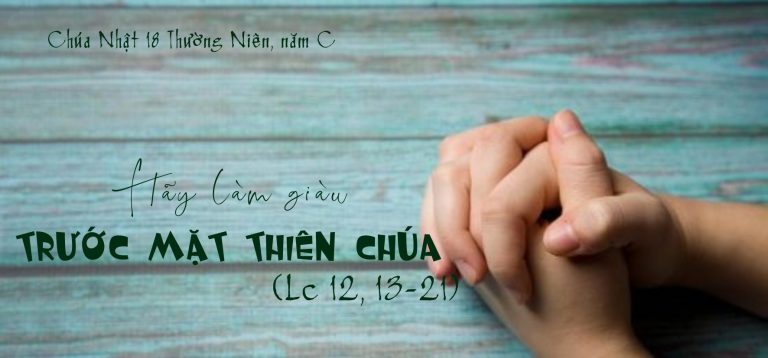 Chúa Nhật 18 Thường Niên, năm C
Hãy làm giàu
TRƯỚC MẶT THIÊN CHÚA
(Lc 12, 13-21)